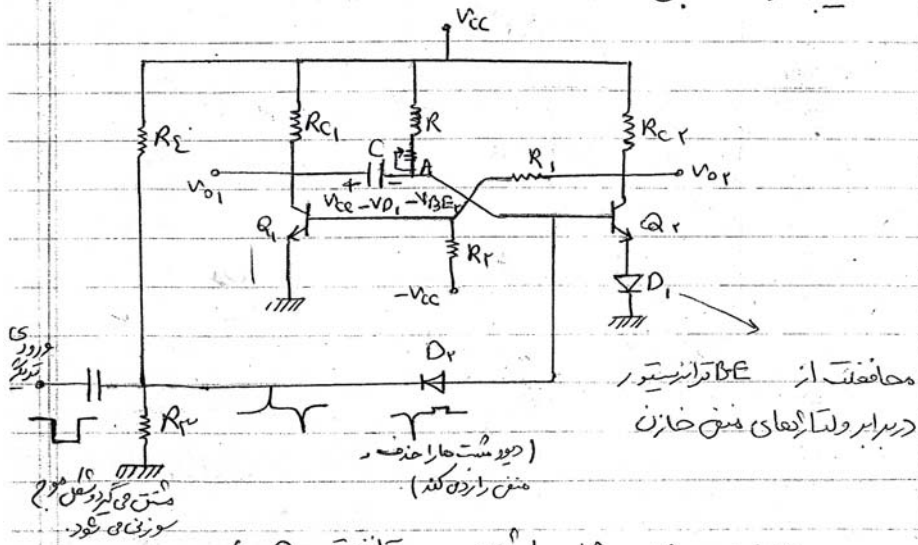 Vcc
R۴
Rc۱
R
Rc۲
C
A
R۱
Vo۱
Vo۲
+
-
Vcc -VD۱ -VBE۲
Q۱
Q۲
R۲
-Vcc
D۱
ورودی
تریگر
D۲
محافظت از BE ترانزیستور
در برابر ولتاژهای منفی خازن
R۳
(دیود مثبت ها را حذف و
منفی را رد می کند)
مشتق می گیرد و شکل موج
سوزنی می شود.